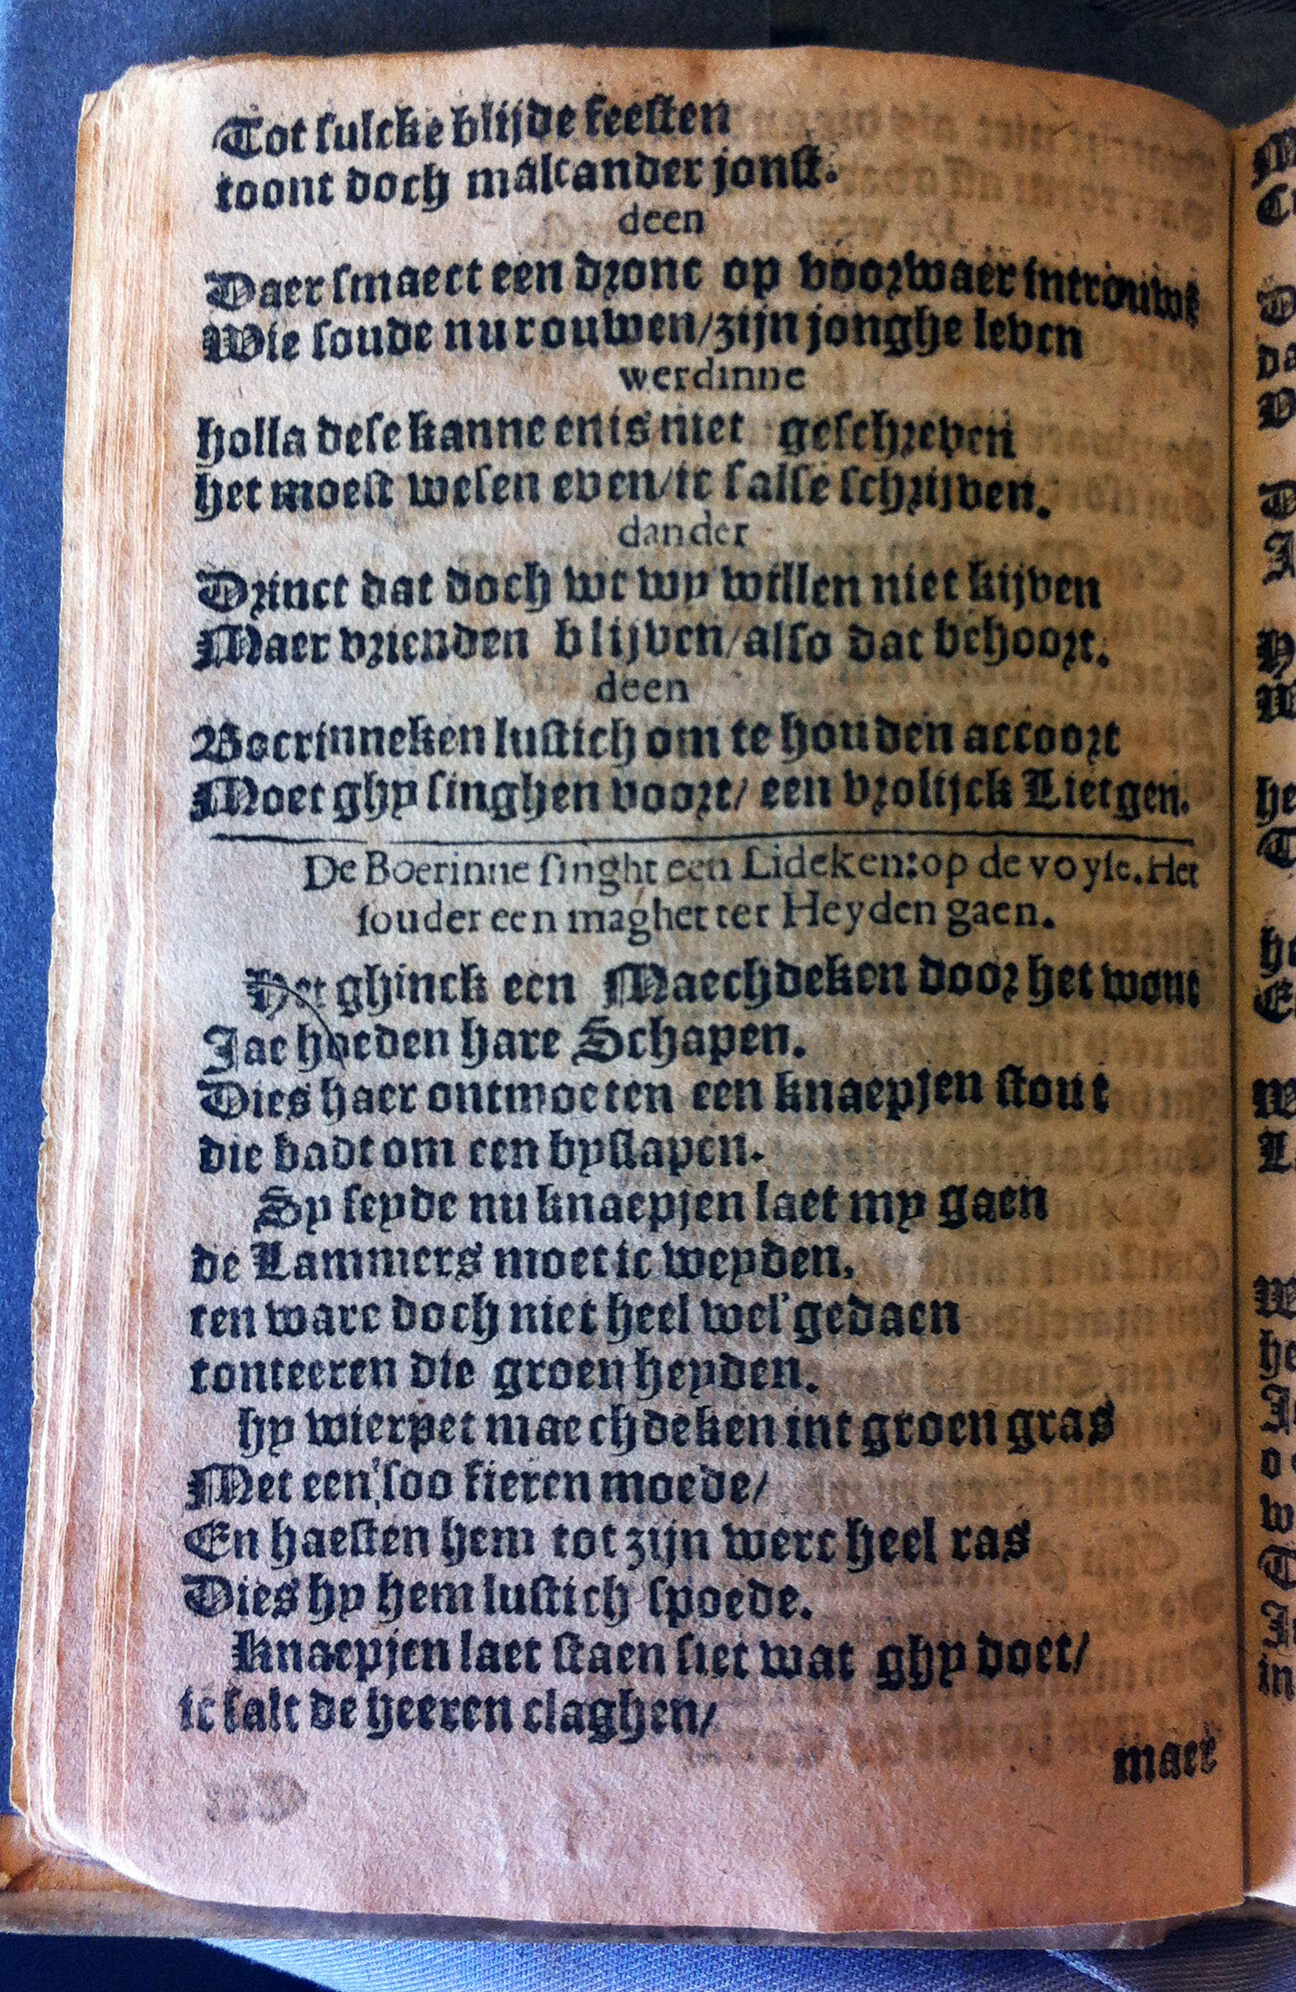 Tot sulcke blijde feesten
toont doch malcander jonst.
deen
Daer smaect een dronc op voorwaer introuwe
Wie soude nu rouwen/zijn jonghe leven
werdinne
holla dese kanne en is niet geschreven
het moest wesen even/ic salse schrijven.
dander
Drinct dat doch wt wy willen niet kijven
Maer vrienden blijven/also dat behoort.
deen
Boerinneken lustich om te houden accoort
Moet ghy singhen voort/ een vrolijck Lietgen.
De Boerinne singht een Lideken: op de voyse. Het
souder een maghet ter Heyden gaen.
Het ghinck een Maechdeken door het wout
Jae hoeden hare Schapen.
Dies haer ontmoeten een knaepjen stout
die badt om een byslapen.
Sy seyde nu knaepjen laet my gaen
de Lammers moet ic weyden,
ten ware doch niet heel wel gedaen
tonteeren die groen heyden.
hy wierpet maechdeken int groen gras
Met een soo fieren moede/
En haesten hem tot zijn werc heel ras
Dies hy hem lustich spoede.
Knaepjen laet staen siet wat ghy doet/
ic salt de heeren claghen/
maer